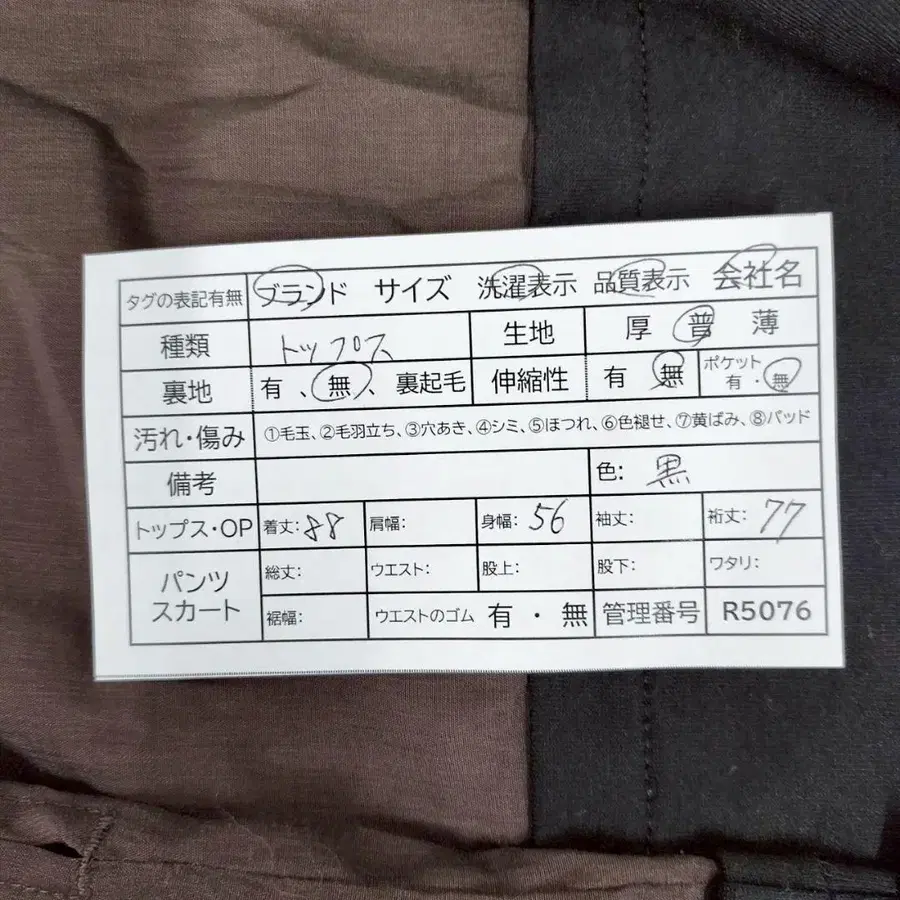 タグの表記有無 ブランド サイズ 洗濯表示 品質表示 会社名
種類 トップス 生地 厚 普 薄
裏地 有 、無、裏起毛 伸縮性 有 無 ポケット 有・無
汚れ・傷み ①毛玉、②毛羽立ち、③穴あき、④シミ、⑤ほつれ、⑥色褪せ、⑦黄ばみ、⑧パッド
備考 色: 黒
トップス・OP 着丈:88 肩幅: 身幅:56 袖丈: 裄丈:77
パンツ スカート 総丈: ウエスト: 股上: 股下: ワタリ:
裾幅: ウエストのゴム 有・無 管理番号 R5076